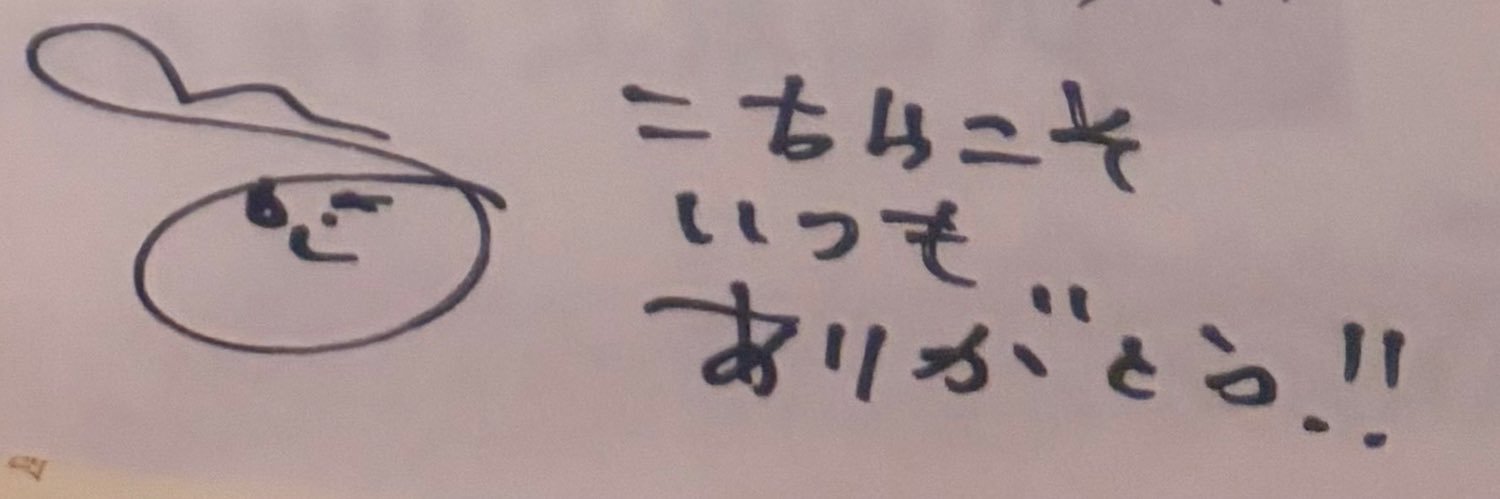 こちらこそ
いつも
ありがとう!!